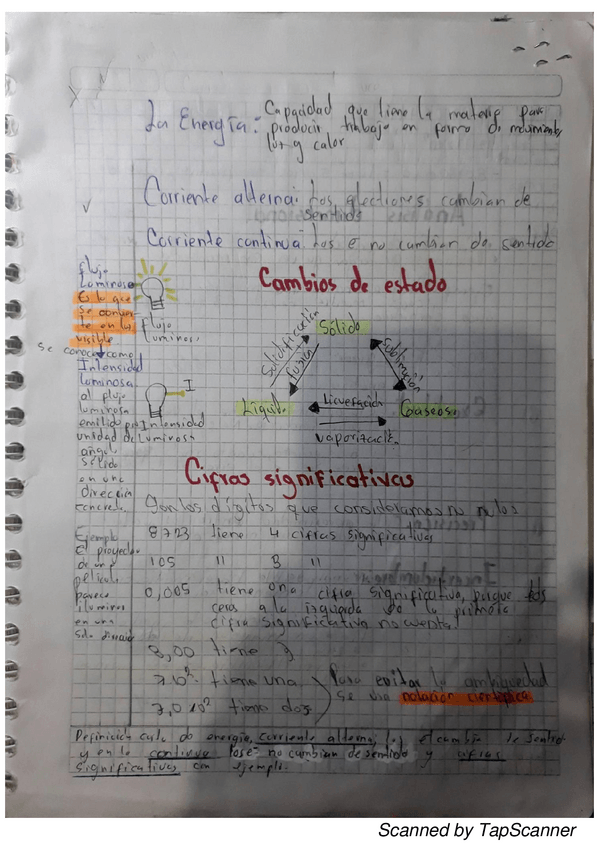 La Energía: Capacidad que tiene la materia para
producir trabajo en forma de movimiento,
luz y calor
Corriente alterna: los electrones cambian de
sentidos
Corriente continua los e no cambian de sentido
Cambios de estado
Flujo
Luminoso
Es lo que
se convier
te en luz
visible
Flujo
luminoso
Se conoce como
Intensidad
luminosa
al flujo
luminoso
emitido por
unidad de
angulo
sólido
en una
Dirección
concreta.
I
Intensidad
luminosa
Sólido
Solidificación
fusión
Sublimación
Liquido
Licuefacción
vaporización
Gaseoso
Cifras significativas
Son los dígitos que consideramos no nulos
8723 tiene 4 cifras significativas
105 " 3 "
0,005 tiene una cifra significativa, porque los
ceros a la izquierda de la primera
cifra significativa no cuenta!
8,00 tiene 3
7 10². tiene una
7,0 10² tiene dos
Para evitar la ambigüedad
se usa notación científica
Ejemplo
El proyector
de una
película
parece
iluminar
en una
sola dirección
Definición de energía, corriente alterna, el cambio de sentido
y en la continua no cambian de sentido y cifras
significativas con ejemplo.
Scanned by TapScanner